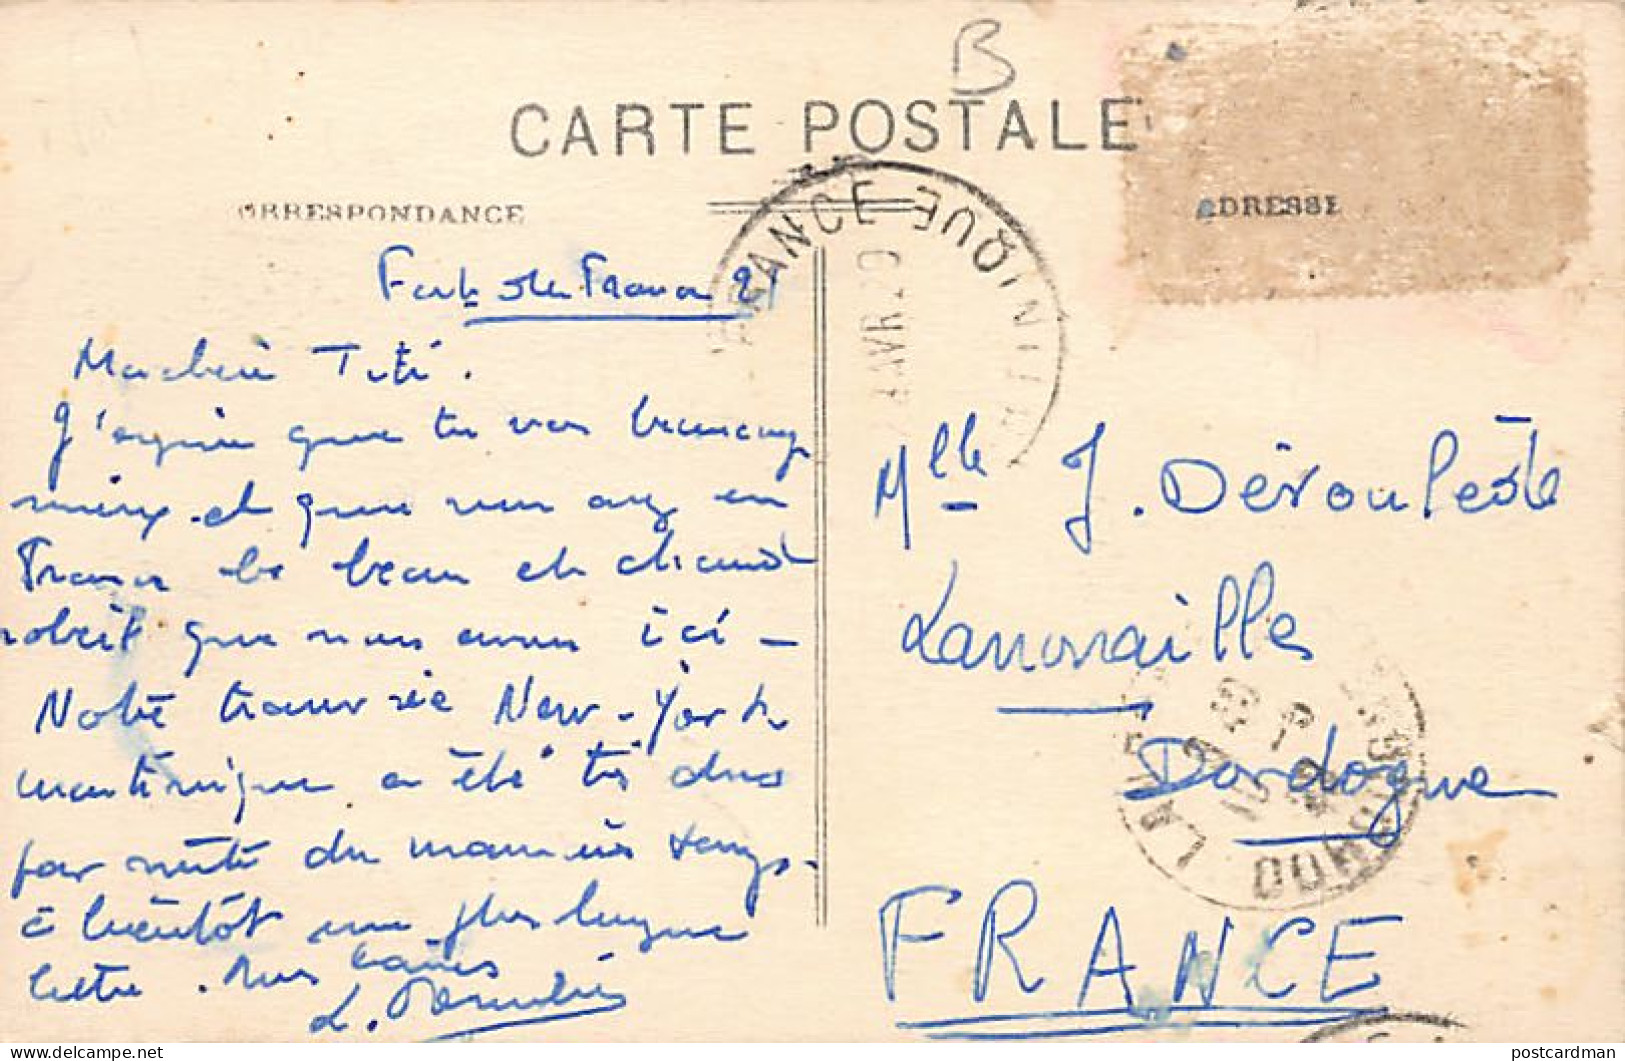 B
CARTE POSTALE
ORRESPONDANCE
ADRESSE
FRANCE
MARTINIQUE
AVR
Fort de France 21
Ma chère Titi.
J'espère que tu vas beaucoup
mieux et que vous avez en
France le beau et chaud
soleil que nous avons ici -
Notre traversée New-York
Martinique a été très dure
par suite du mauvais temps -
à bientôt une plus longue
lettre. Nos
L.
Mlle J. Déroulède
Lanouaille
Dordogne
DORDOGNE
FRANCE
postcardman